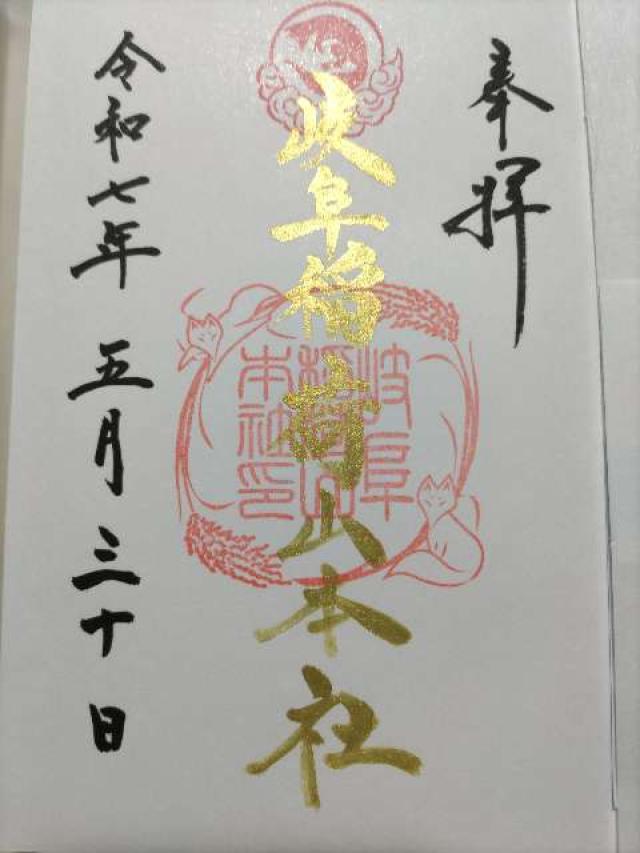 奉拝
岐阜稲荷山本社
岐阜
稲荷山
本社印
令和七年 五月 三十日